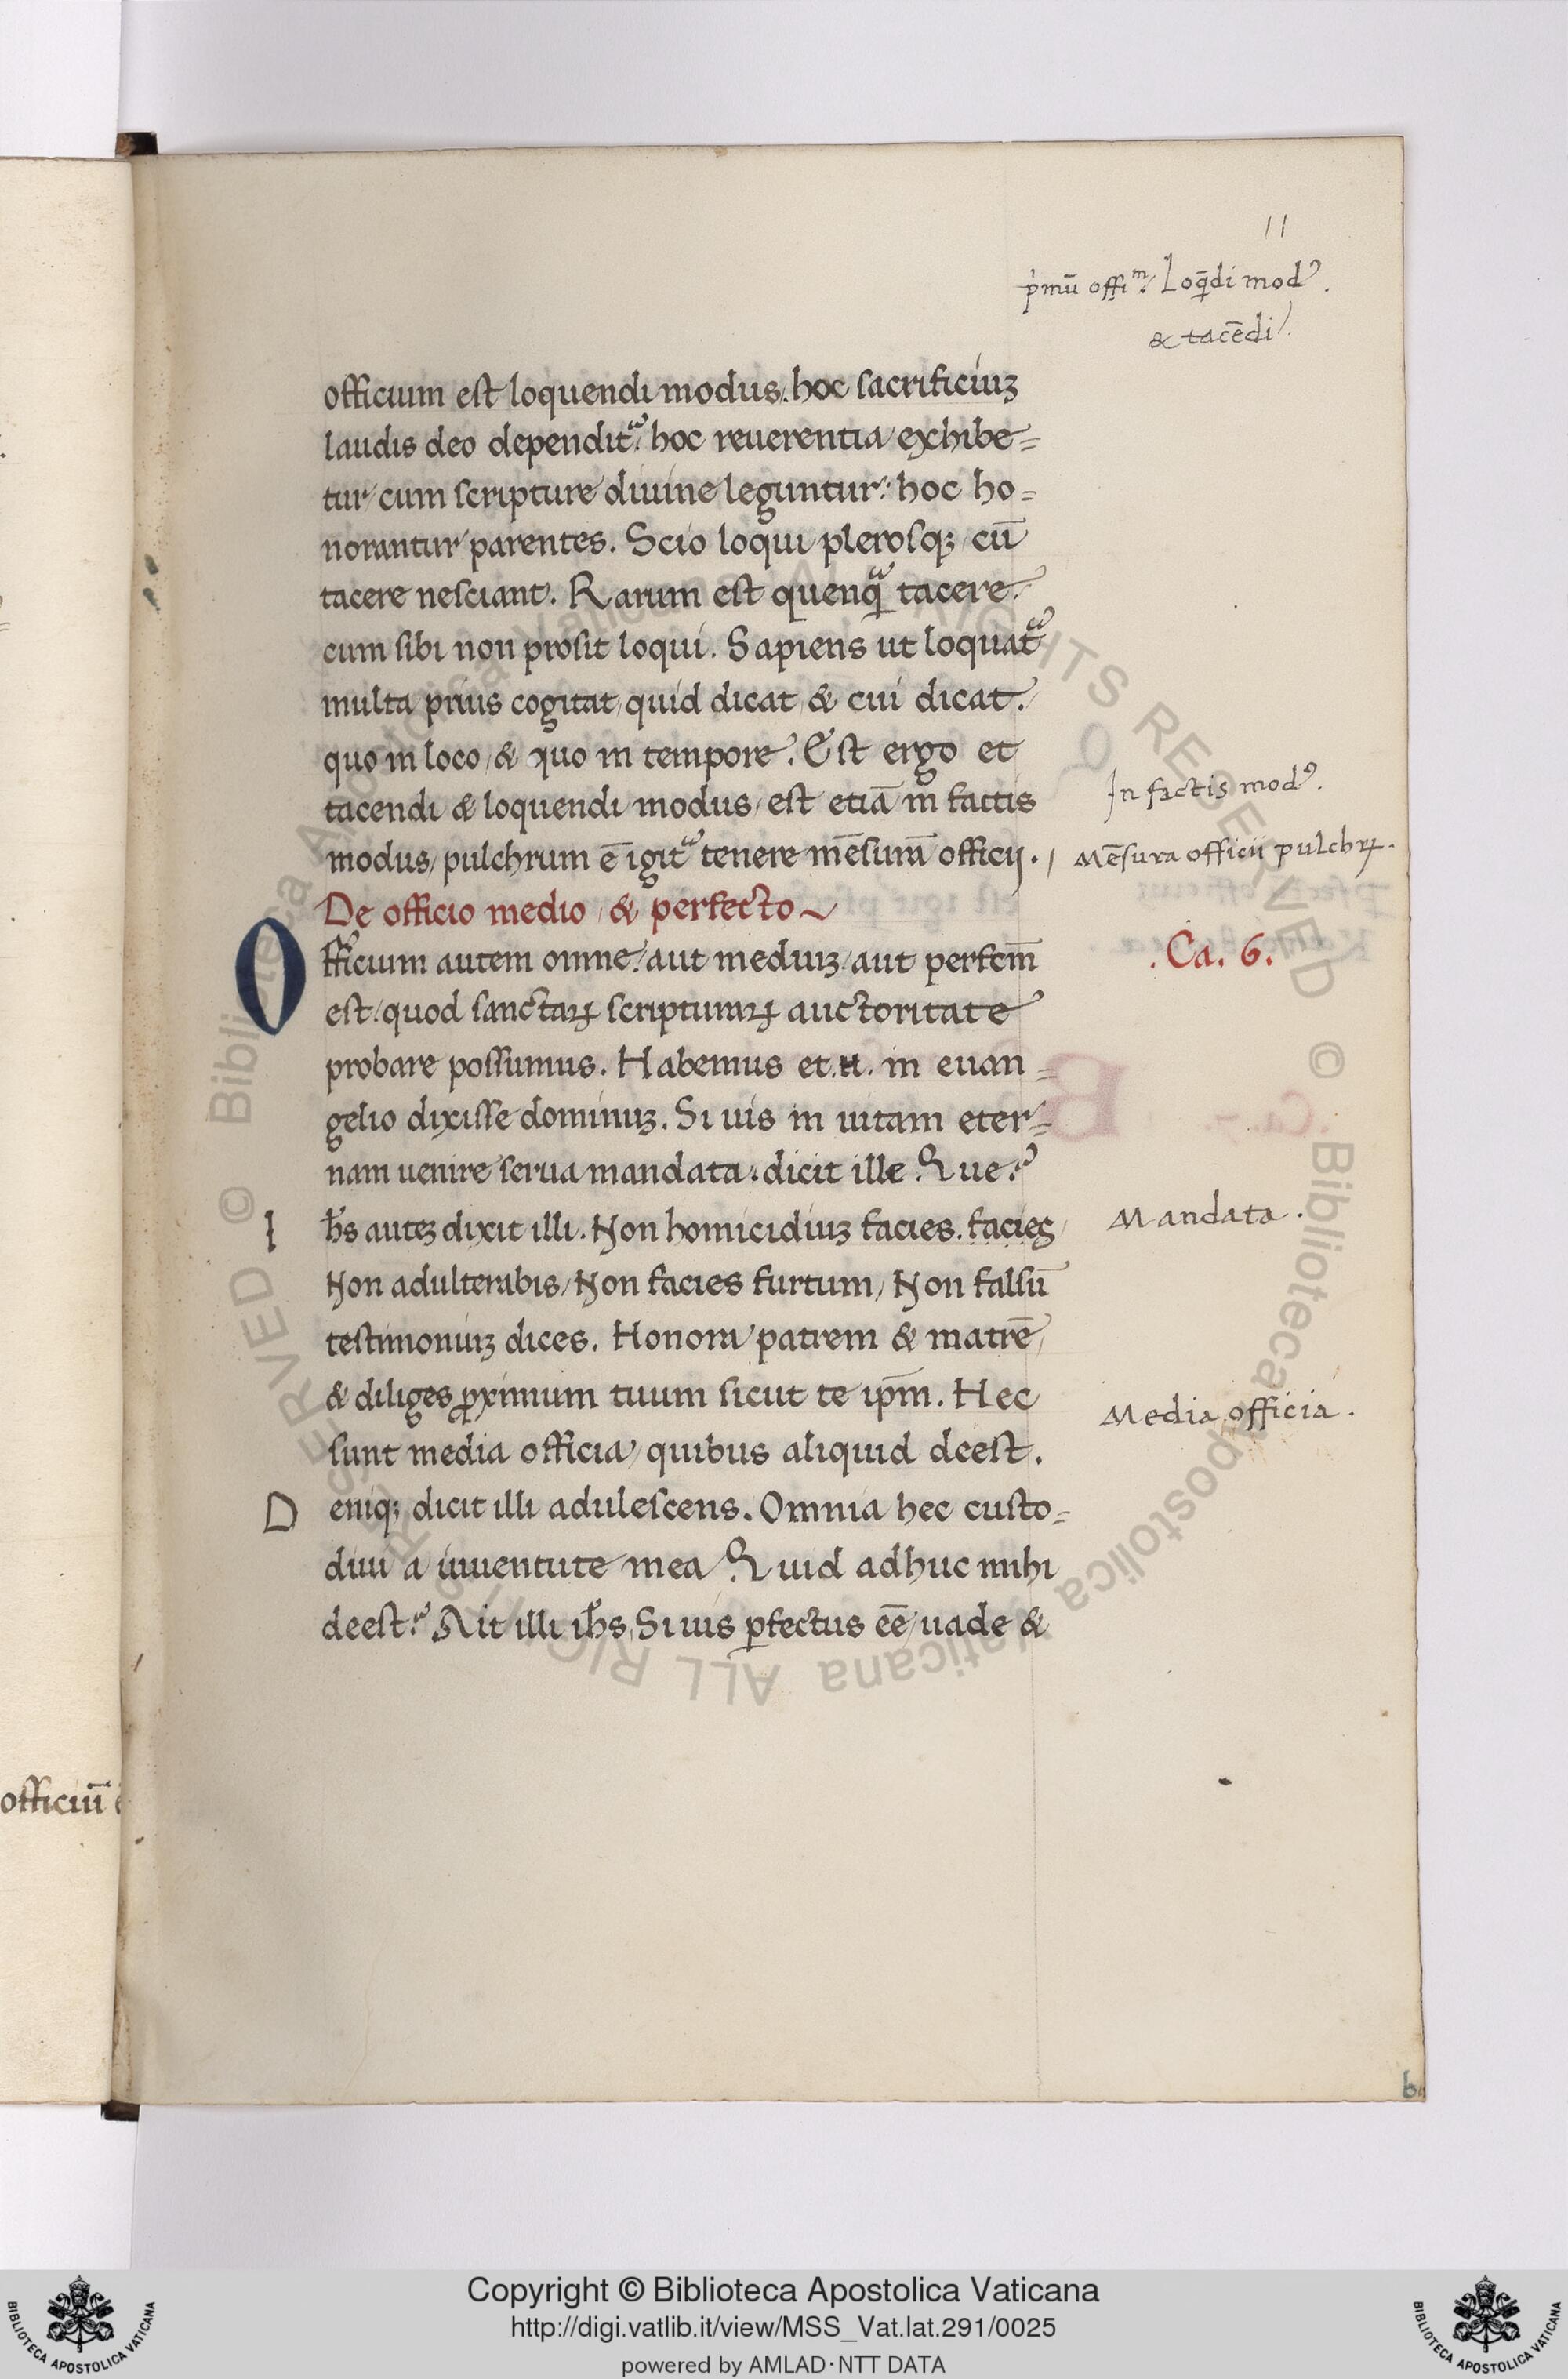 11
p̾mū offi^m. Loq̄di modꝰ.
& tacēdi.
officium est loquendi modus. hoc sacrificiuꝫ
laudis deo dependit᷑. hoc reuerentia exhibe=
tur cum scripture diuine leguntur. hoc ho=
norantur parentes. Scio loqui plerosqꝫ cū
tacere nesciant. Rarum est quenqᷓ tacere.
cum sibi non prosit loqui. Sapiens ut loquat᷑
multa prius cogitat quid dicat & cui dicat.
quo in loco & quo in tempore. Est ergo et
tacendi & loquendi modus, est etiā in factis
In factis modꝰ.
modus, pulchrum ē igit᷑ tenere mēsurā officij.
mēsura officii pulchrꝝ.
De officio medio & perfecto
.Ca. 6.
Officium autem omne, aut mediuꝫ aut perfcm̄
est, quod sanctaꝝ scripturaꝝ auctoritate
probare possumus. Habemus et.n. in euan=
gelio dixisse dominuꝫ. Si uis in uitam eter=
nam uenire serua mandata. dicit ille. Que?
Ihs̄ auteꝫ dixit illi. Non homicidiuꝫ facies. facies
Mandata.
Non adulterabis, Non facies furtum, Non falsū
testimoniuꝫ dices. Honora patrem & matrē
& diliges ꝓximum tuum sicut te ip̄m. Hec
Media officia.
sunt media officia, quibus aliquid deest.
Deniqꝫ dicit illi adulescens. Omnia hec custo=
diui a iuuentute mea. Quid adhuc mihi
deest? Ait illi ih̄s, Si uis ꝑfectus eē, uade &
officiū
b
Copyright © Biblioteca Apostolica Vaticana
http://digi.vatlib.it/view/MSS_Vat.lat.291/0025
powered by AMLAD·NTT DATA
BIBLIOTECA APOSTOLICA VATICANA
BIBLIOTECA APOSTOLICA VATICANA